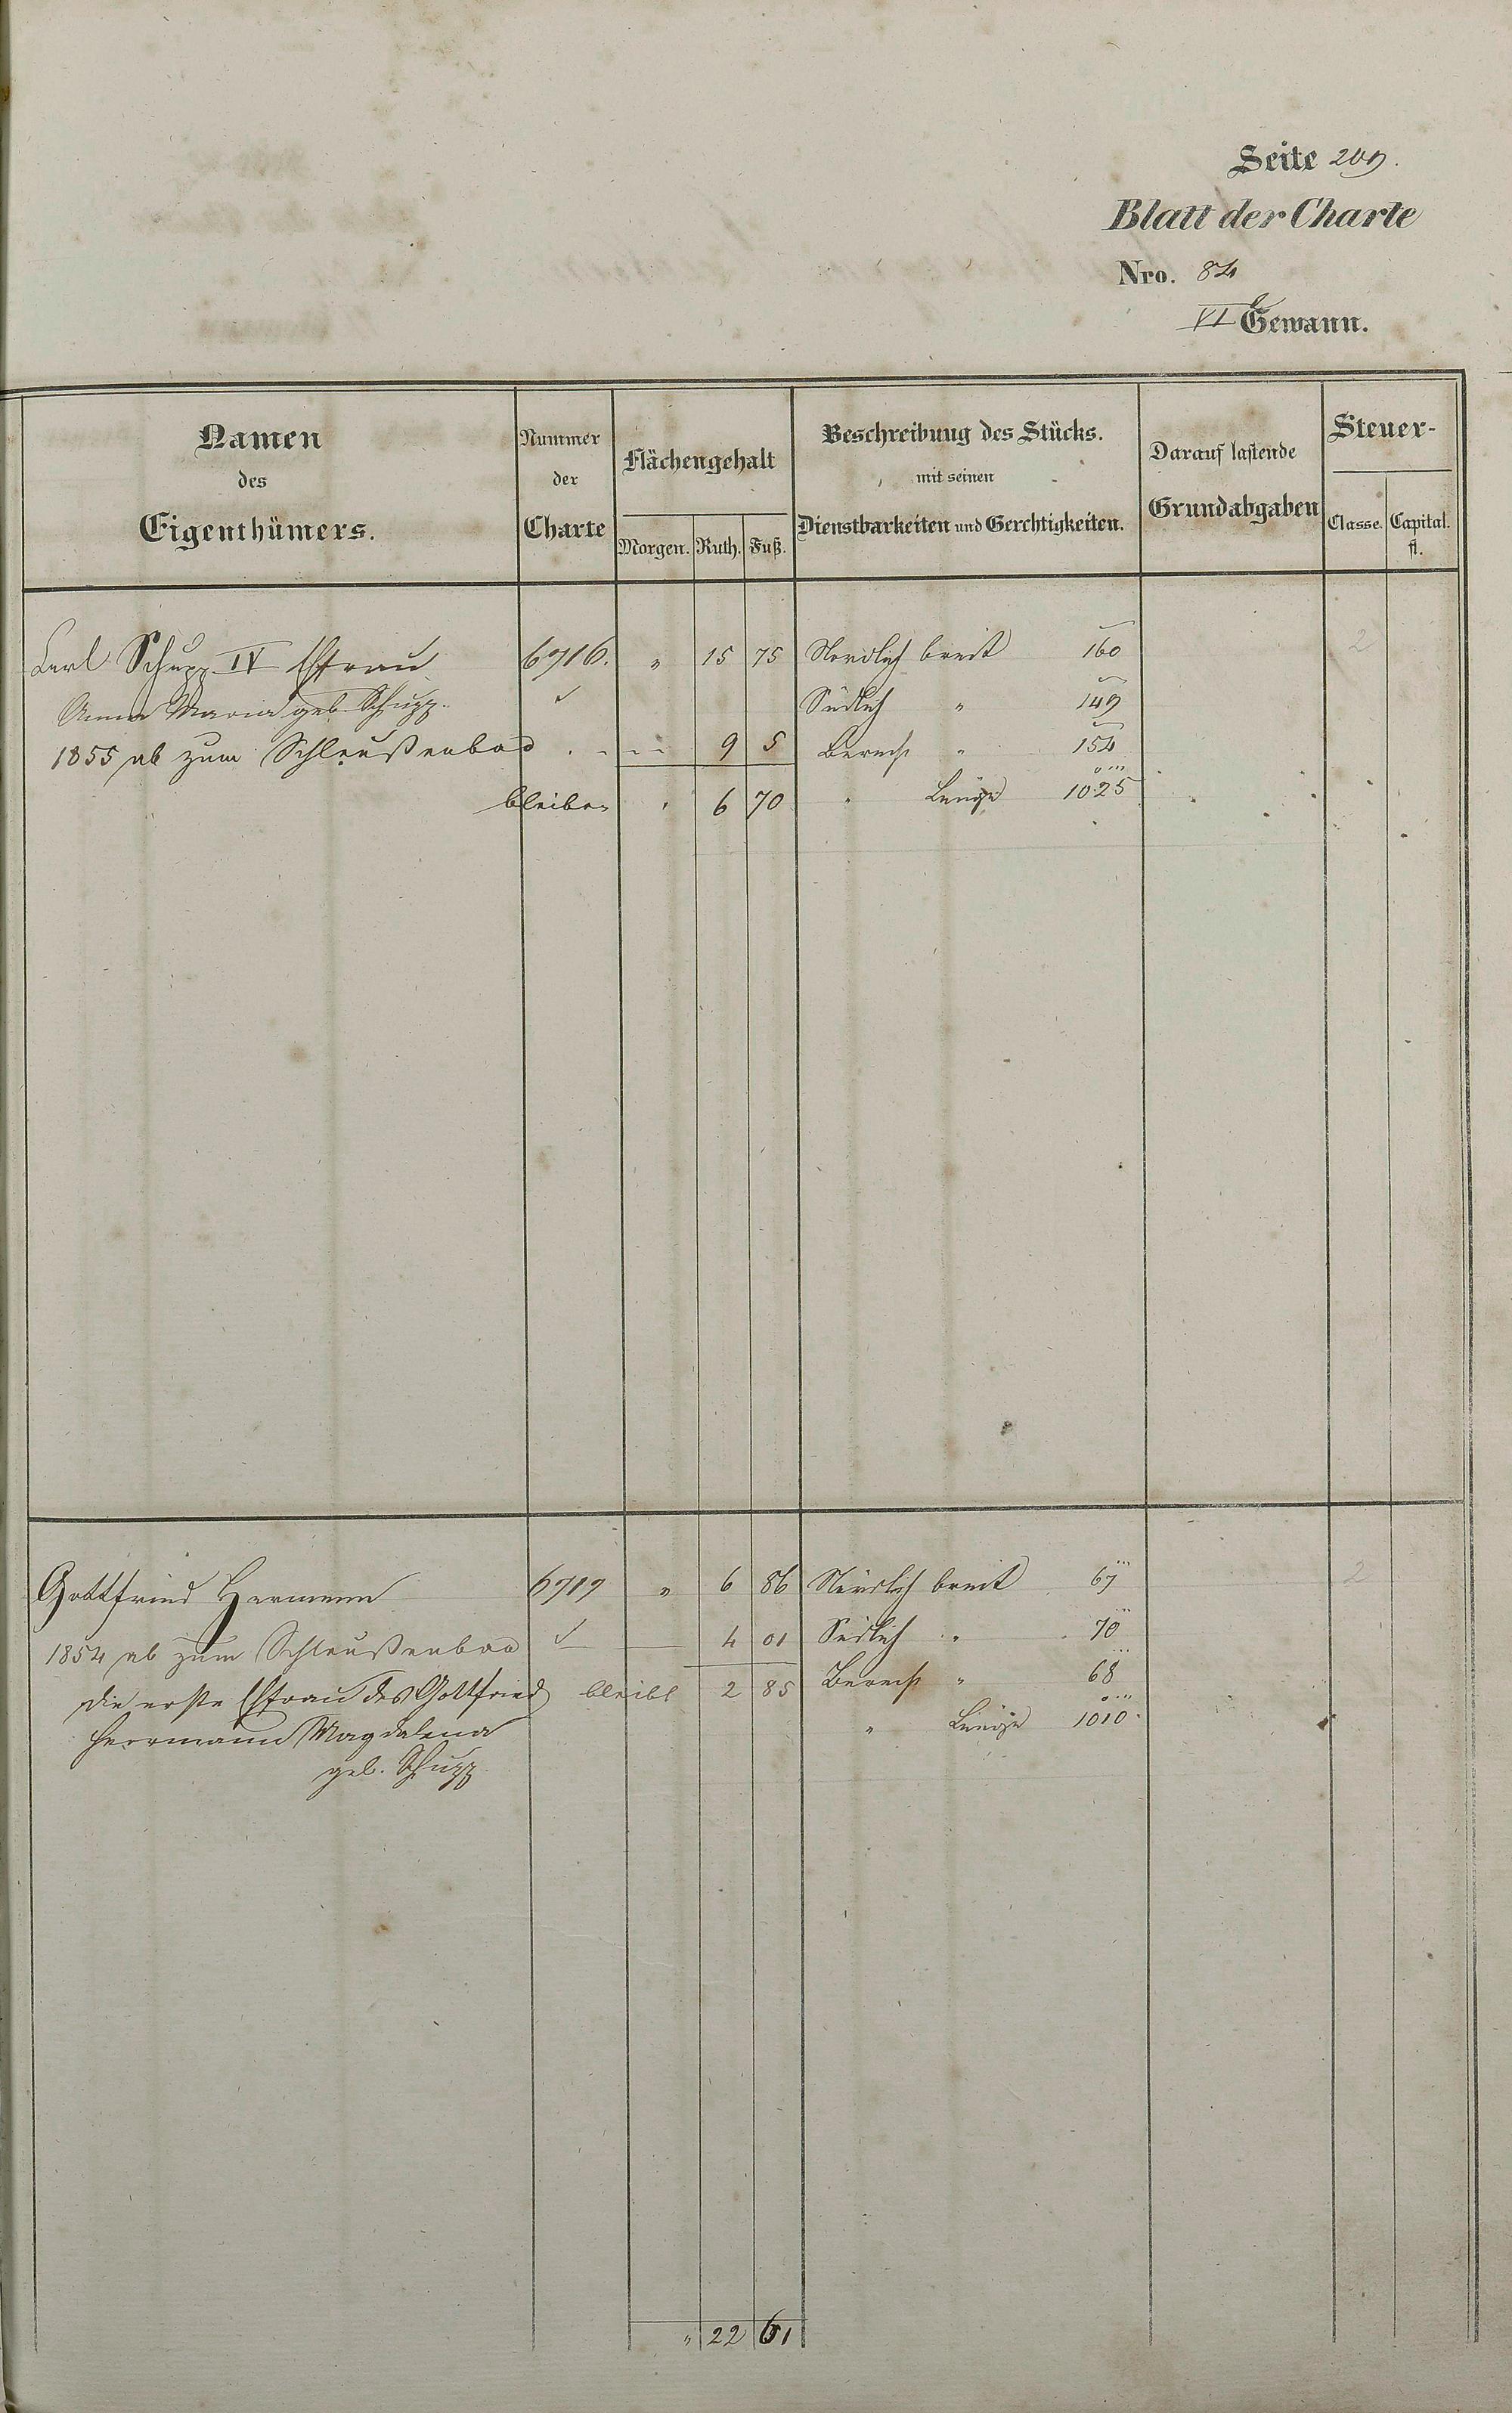 Seite 209.
Blatt der Charte
Nro. 84
VI Gewann.
Namen des Eigenthümers.
Nummer der Charte
Flächengehalt
Morgen. Ruth. Fuß.
Beschreibung des Stücks. mit seinen Dienstbarkeiten und Gerchtigkeiten.
Darauf lastende Grundabgaben
Steuer-
Classe. Capital. fl.
Carl Schupp IV Ehfrau 6716. " 15 75 Nördlich breit 160 2
Anna Maria geb. Schupp. Südlich " 149
1855 ab zum Schleußenbad 9 5 Berech " 154
bleiben " 6 70 " Länge 1025
Gottfried Hermann 6717 " 6 86 Nördlich breit 67 2
1854 ab zum Schleußenbad 4 01 Südlich " 70
die erste Ehfrau des Gottfried bleibt 2 85 Berech " 68
Herrmann Magdalena " Länge 1010
geb. Schupp
" 22 61